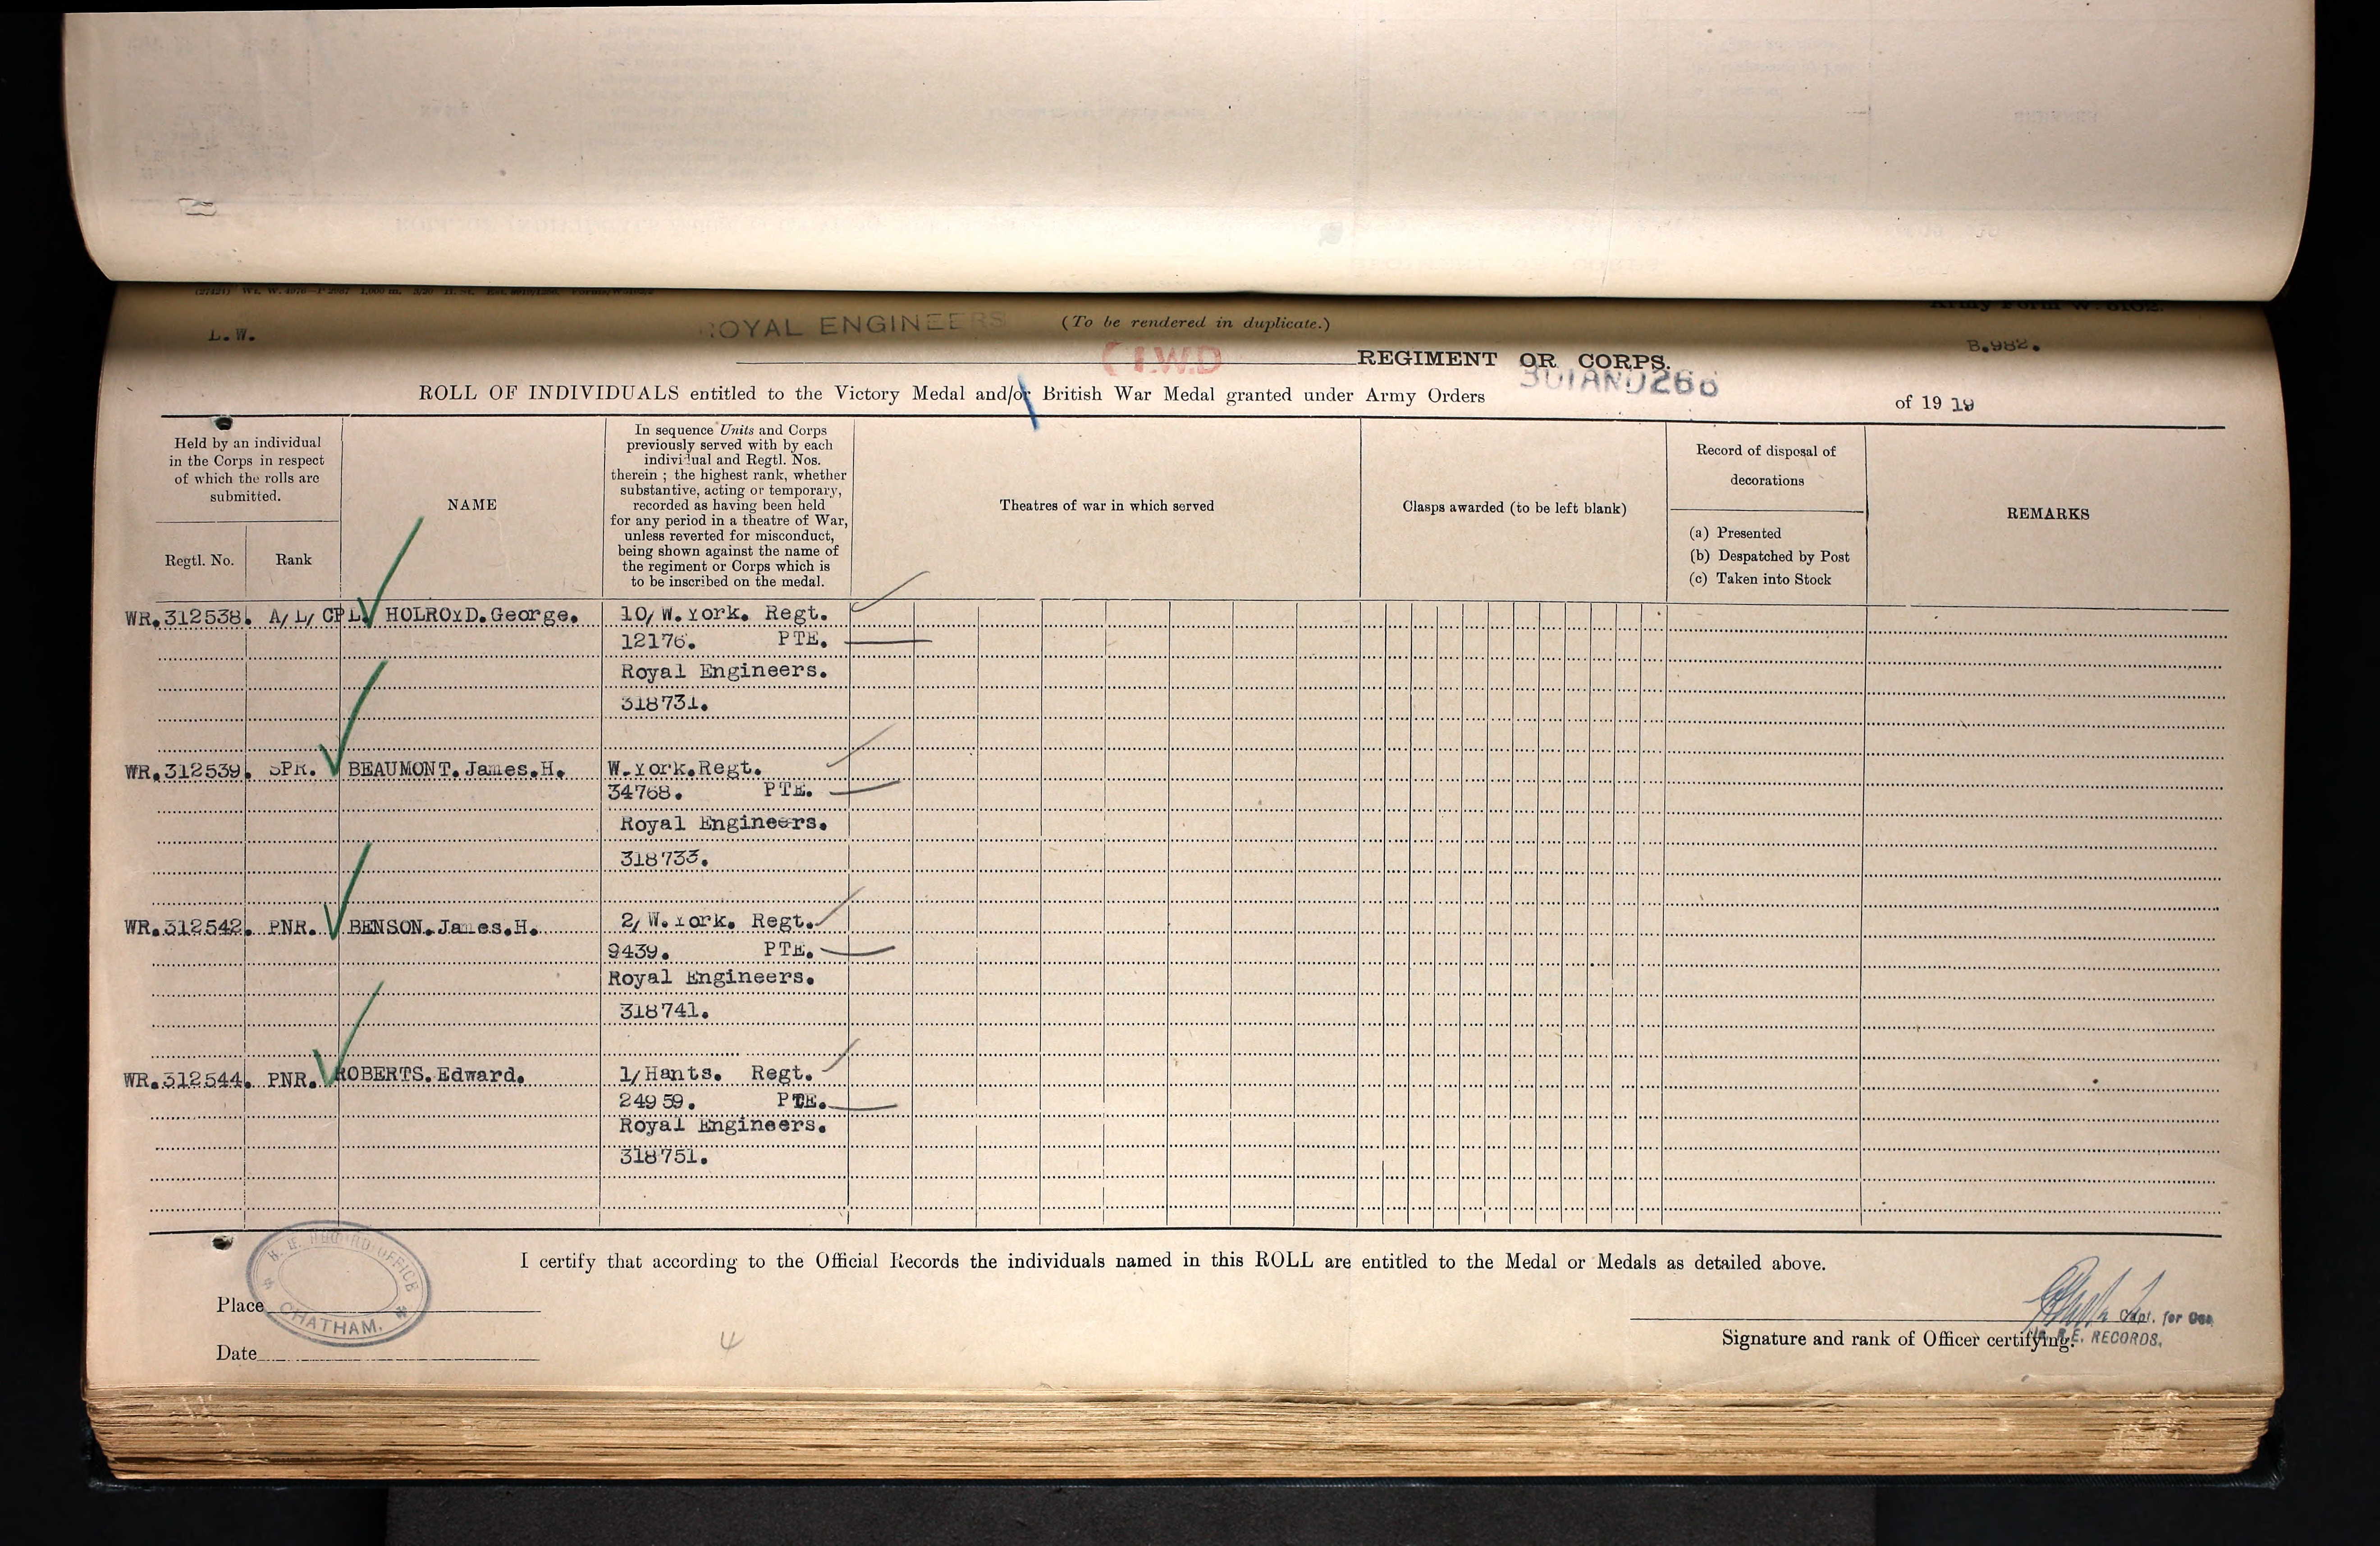 L. W.
ROYAL ENGINEERS
(To be rendered in duplicate.)
B.982.
(I.W.D
REGIMENT OR CORPS.
ROLL OF INDIVIDUALS entitled to the Victory Medal and/or British War Medal granted under Army Orders 301AND266 of 19 19
Held by an individual
in the Corps in respect
of which the rolls are
submitted.
Regtl. No.
Rank
NAME
In sequence Units and Corps
previously served with by each
individual and Regtl. Nos.
therein ; the highest rank, whether
substantive, acting or temporary,
recorded as having been held
for any period in a theatre of War,
unless reverted for misconduct,
being shown against the name of
the regiment or Corps which is
to be inscribed on the medal.
Theatres of war in which served
Clasps awarded (to be left blank)
Record of disposal of
decorations
(a) Presented
(b) Despatched by Post
(c) Taken into Stock
REMARKS
WR.312538. A/L/CPL. HOLROYD.George. 10/W.York. Regt.
12176. PTE.
Royal Engineers.
318731.
WR.312539. SPR. BEAUMONT.James.H. W.York.Regt.
34768. PTE.
Royal Engineers.
318733.
WR.312542. PNR. BENSON.James.H. 2/W.York. Regt.
9439. PTE.
Royal Engineers.
318741.
WR.312544. PNR. ROBERTS.Edward. 1/Hants. Regt.
24959. PTE.
Royal Engineers.
318751.
I certify that according to the Official Records the individuals named in this ROLL are entitled to the Medal or Medals as detailed above.
RECORD OFFICE
CHATHAM.
Place
Date
4
Capt. for
R.E. RECORDS.
Signature and rank of Officer certifying.